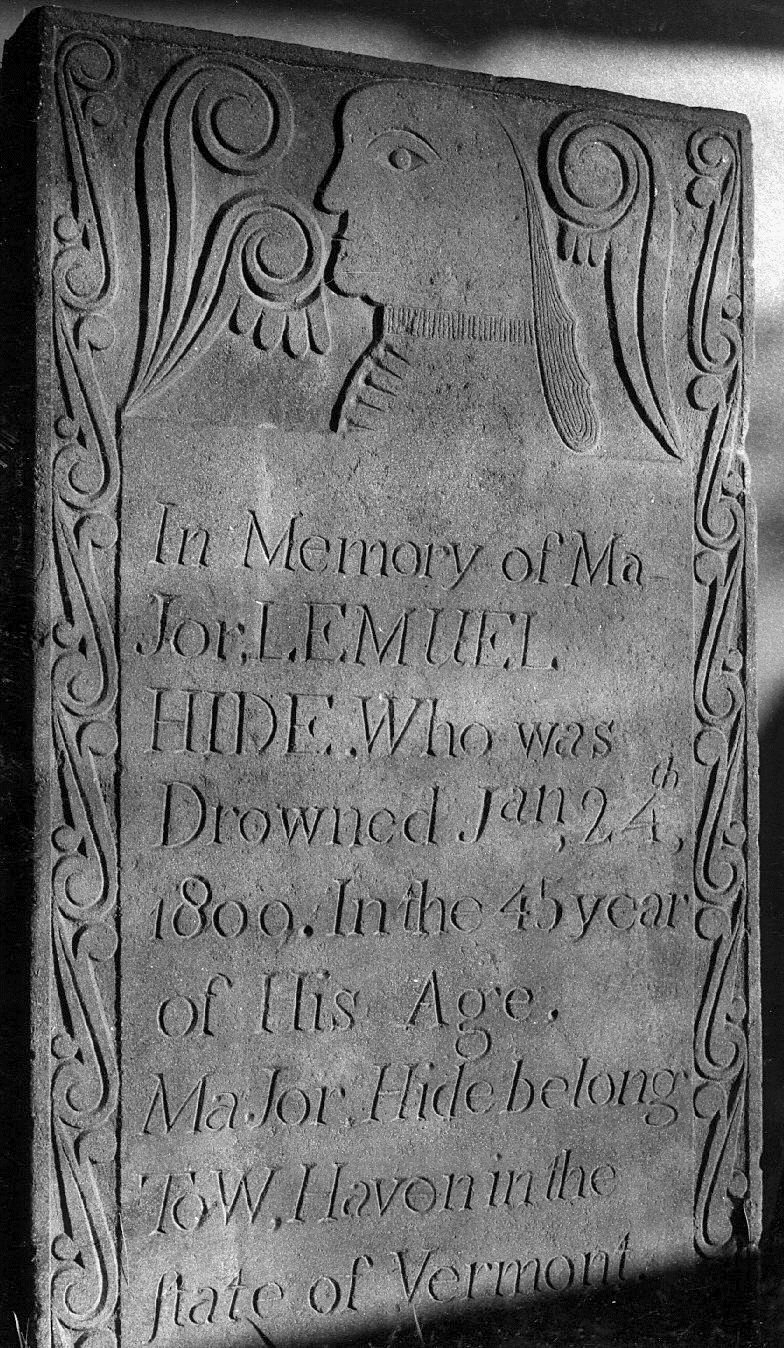 In Memory of Ma-
Jor, LEMUEL
HIDE. Who was
Drowned Jan, 24th,
1800. In the 45 year
of His Age.
MaJor, Hide belong
To W, Havon in the
ſtate of Vermont.